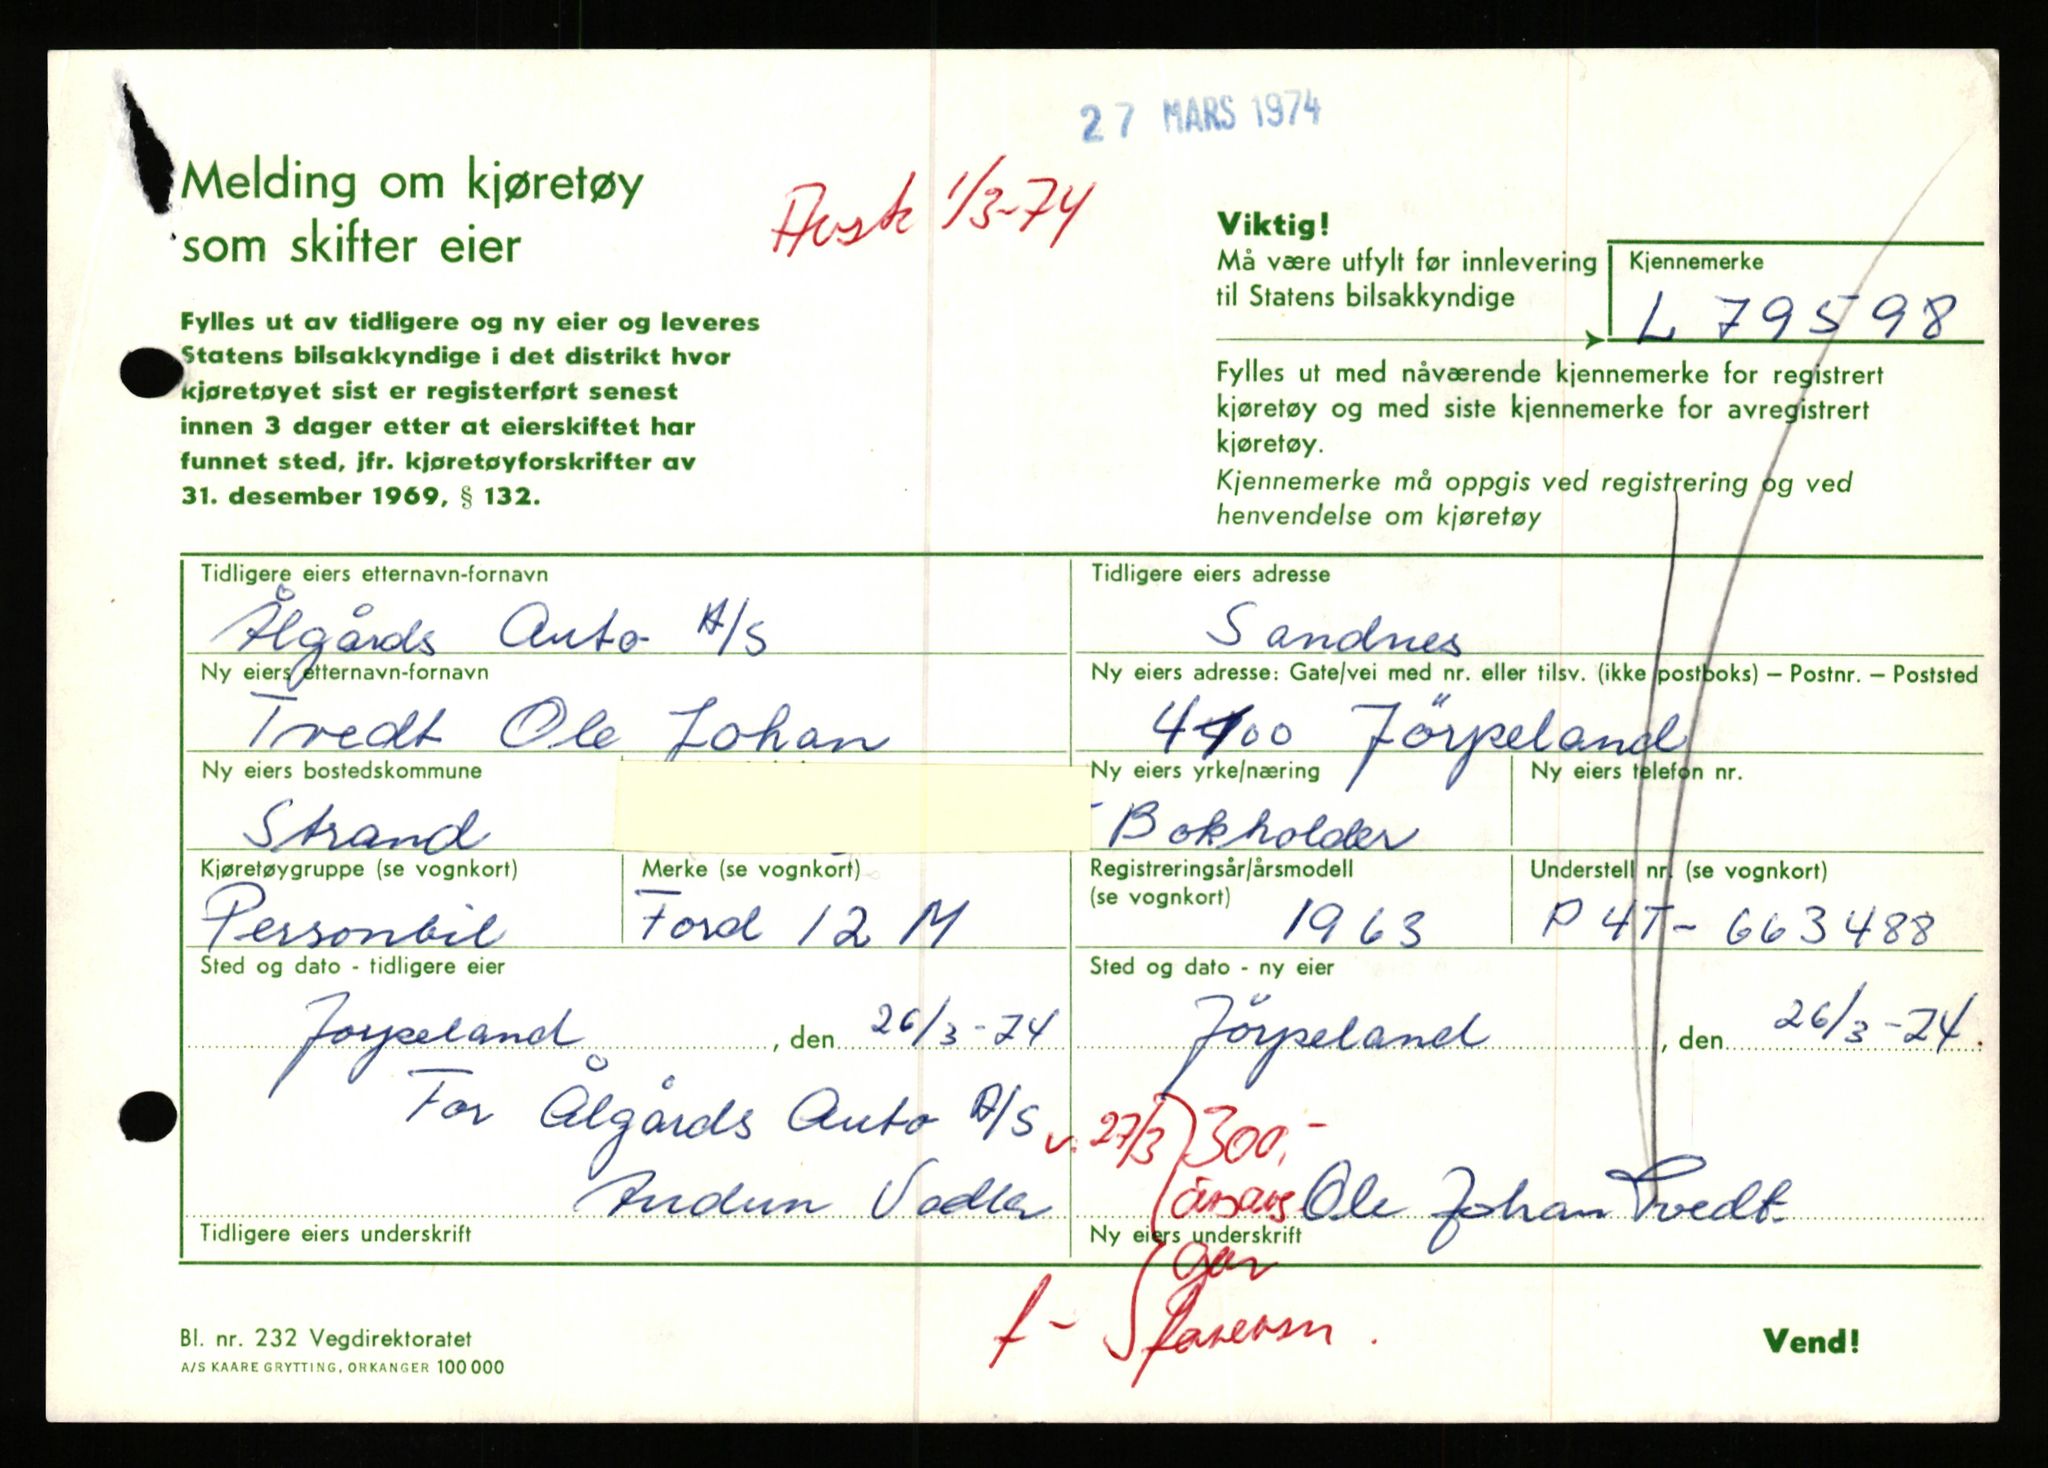 27 MARS 1974
Avsk 1/3-74
Melding om kjøretøy
som skifter eier
Fylles ut av tidligere og ny eier og leveres
Statens bilsakkyndige i det distrikt hvor
kjøretøyet sist er registerført senest
innen 3 dager etter at eierskiftet har
funnet sted, jfr. kjøretøyforskrifter av
31. desember 1969, § 132.
Viktig!
Må være utfylt før innlevering
til Statens bilsakkyndige
Kjennemerke
L 79598
Fylles ut med nåværende kjennemerke for registrert
kjøretøy og med siste kjennemerke for avregistrert
kjøretøy.
Kjennemerke må oppgis ved registrering og ved
henvendelse om kjøretøy
Tidligere eiers etternavn-fornavn
Ålgårds Auto A/S
Tidligere eiers adresse
Sandnes
Ny eiers etternavn-fornavn
Tvedt Ole Johan
Ny eiers adresse: Gate/vei med nr. eller tilsv. (ikke postboks) – Postnr. – Poststed
4100 Jörpeland
Ny eiers bostedskommune
Strand
Ny eiers yrke/næring
Bokholder
Ny eiers telefon nr.
Kjøretøygruppe (se vognkort)
Personbil
Merke (se vognkort)
Ford 12 M
Registreringsår/årsmodell
(se vognkort)
1963
Understell nr. (se vognkort)
P4T-663488
Sted og dato - tidligere eier
Jorpeland, den 26/3-74
For Ålgårds Auto A/S
Audun Vadla
Tidligere eiers underskrift
Sted og dato - ny eier
Jörpeland, den 26/3-74.
v. 27/3 300,-
Ole Johan Tvedt.
Ny eiers underskrift
Bl. nr. 232 Vegdirektoratet
A/S KAARE GRYTTING, ORKANGER 100 000
Vend!